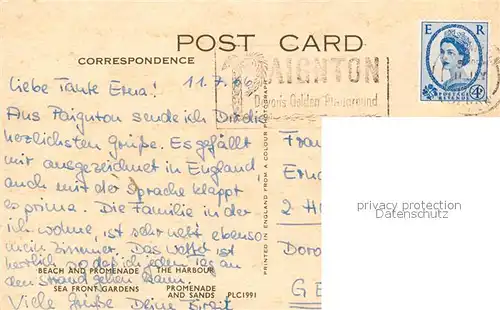 POST CARD
CORRESPONDENCE
E R
POSTAGE REVENUE
4D
PAIGNTON
Devon's Golden Playground
Liebe Tante Erna! 11.7.66
Aus Paignton sende ich Dir die
herzlichsten Grüße. Es gefällt
mir ausgezeichnet in England
auch mit der Sprache klappt
es prima. Die Familie in der
ich wohne, ist sehr nett ebenso
mein Zimmer. Das Wetter ist
herrlich so daß ich jeden Tag an
den Strand gehen kann.
Viele Grüße Deine Birgit
BEACH AND PROMENADE THE HARBOUR
SEA FRONT GARDENS PROMENADE
AND SANDS PLC1991
PRINTED IN ENGLAND FROM A COLOUR PHOTOGRAPH
Frau
Erna
2 H
Doro
GE
Privatpersonen
Datenschutz